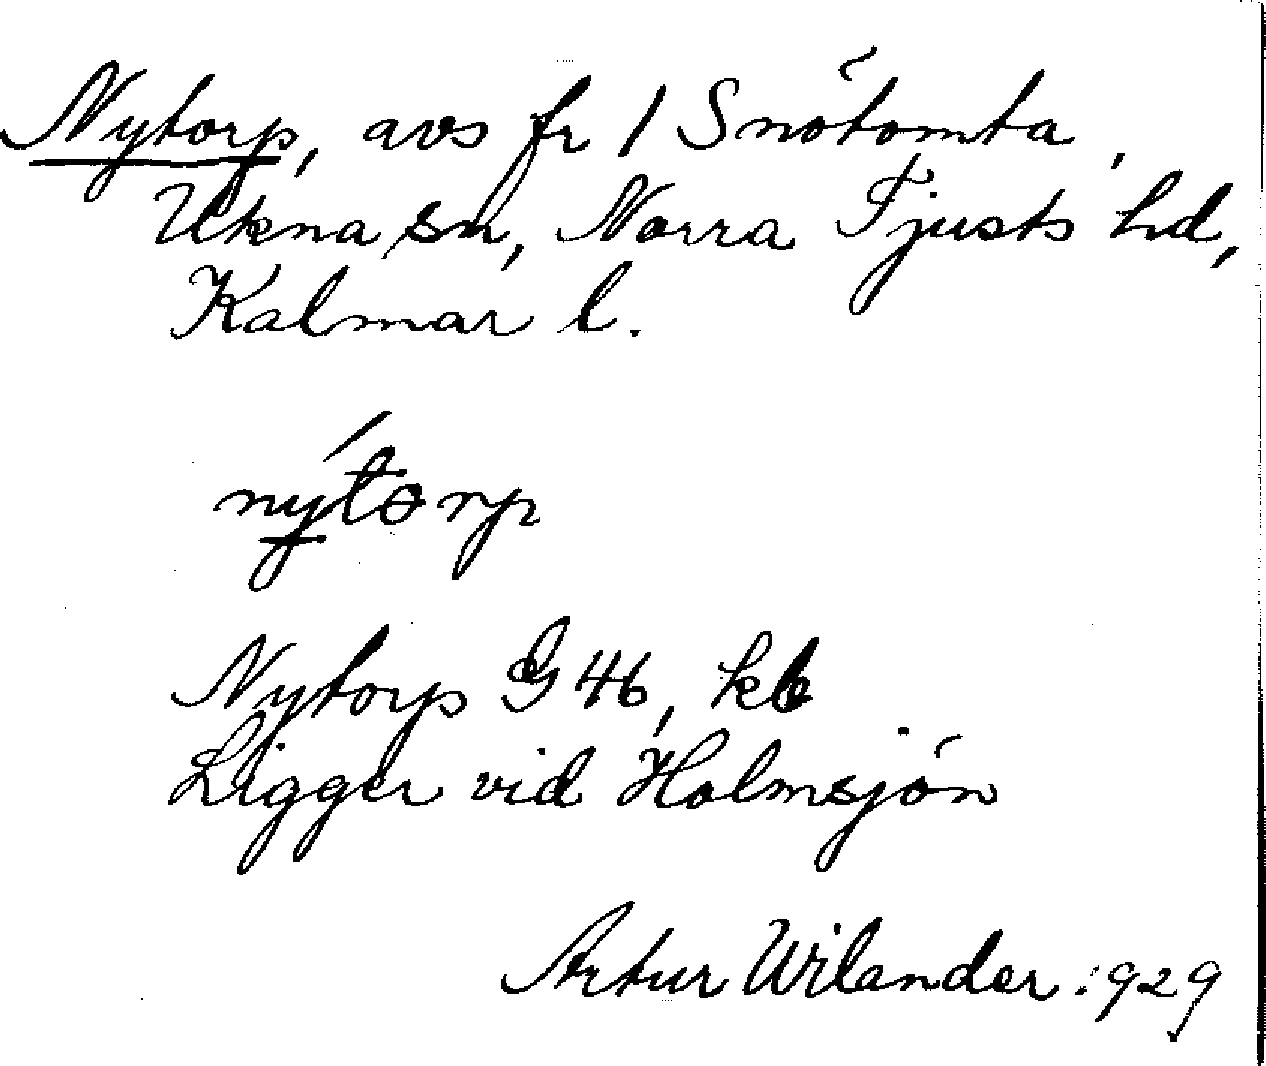 Nytorp, avs fr 1 Snötomta,
Ukna sn, Norra Tjusts hd,
Kalmar l.
nýtorp
Nytorp G 46, kb
Ligger vid Holmsjön
Artur Wilander 1929